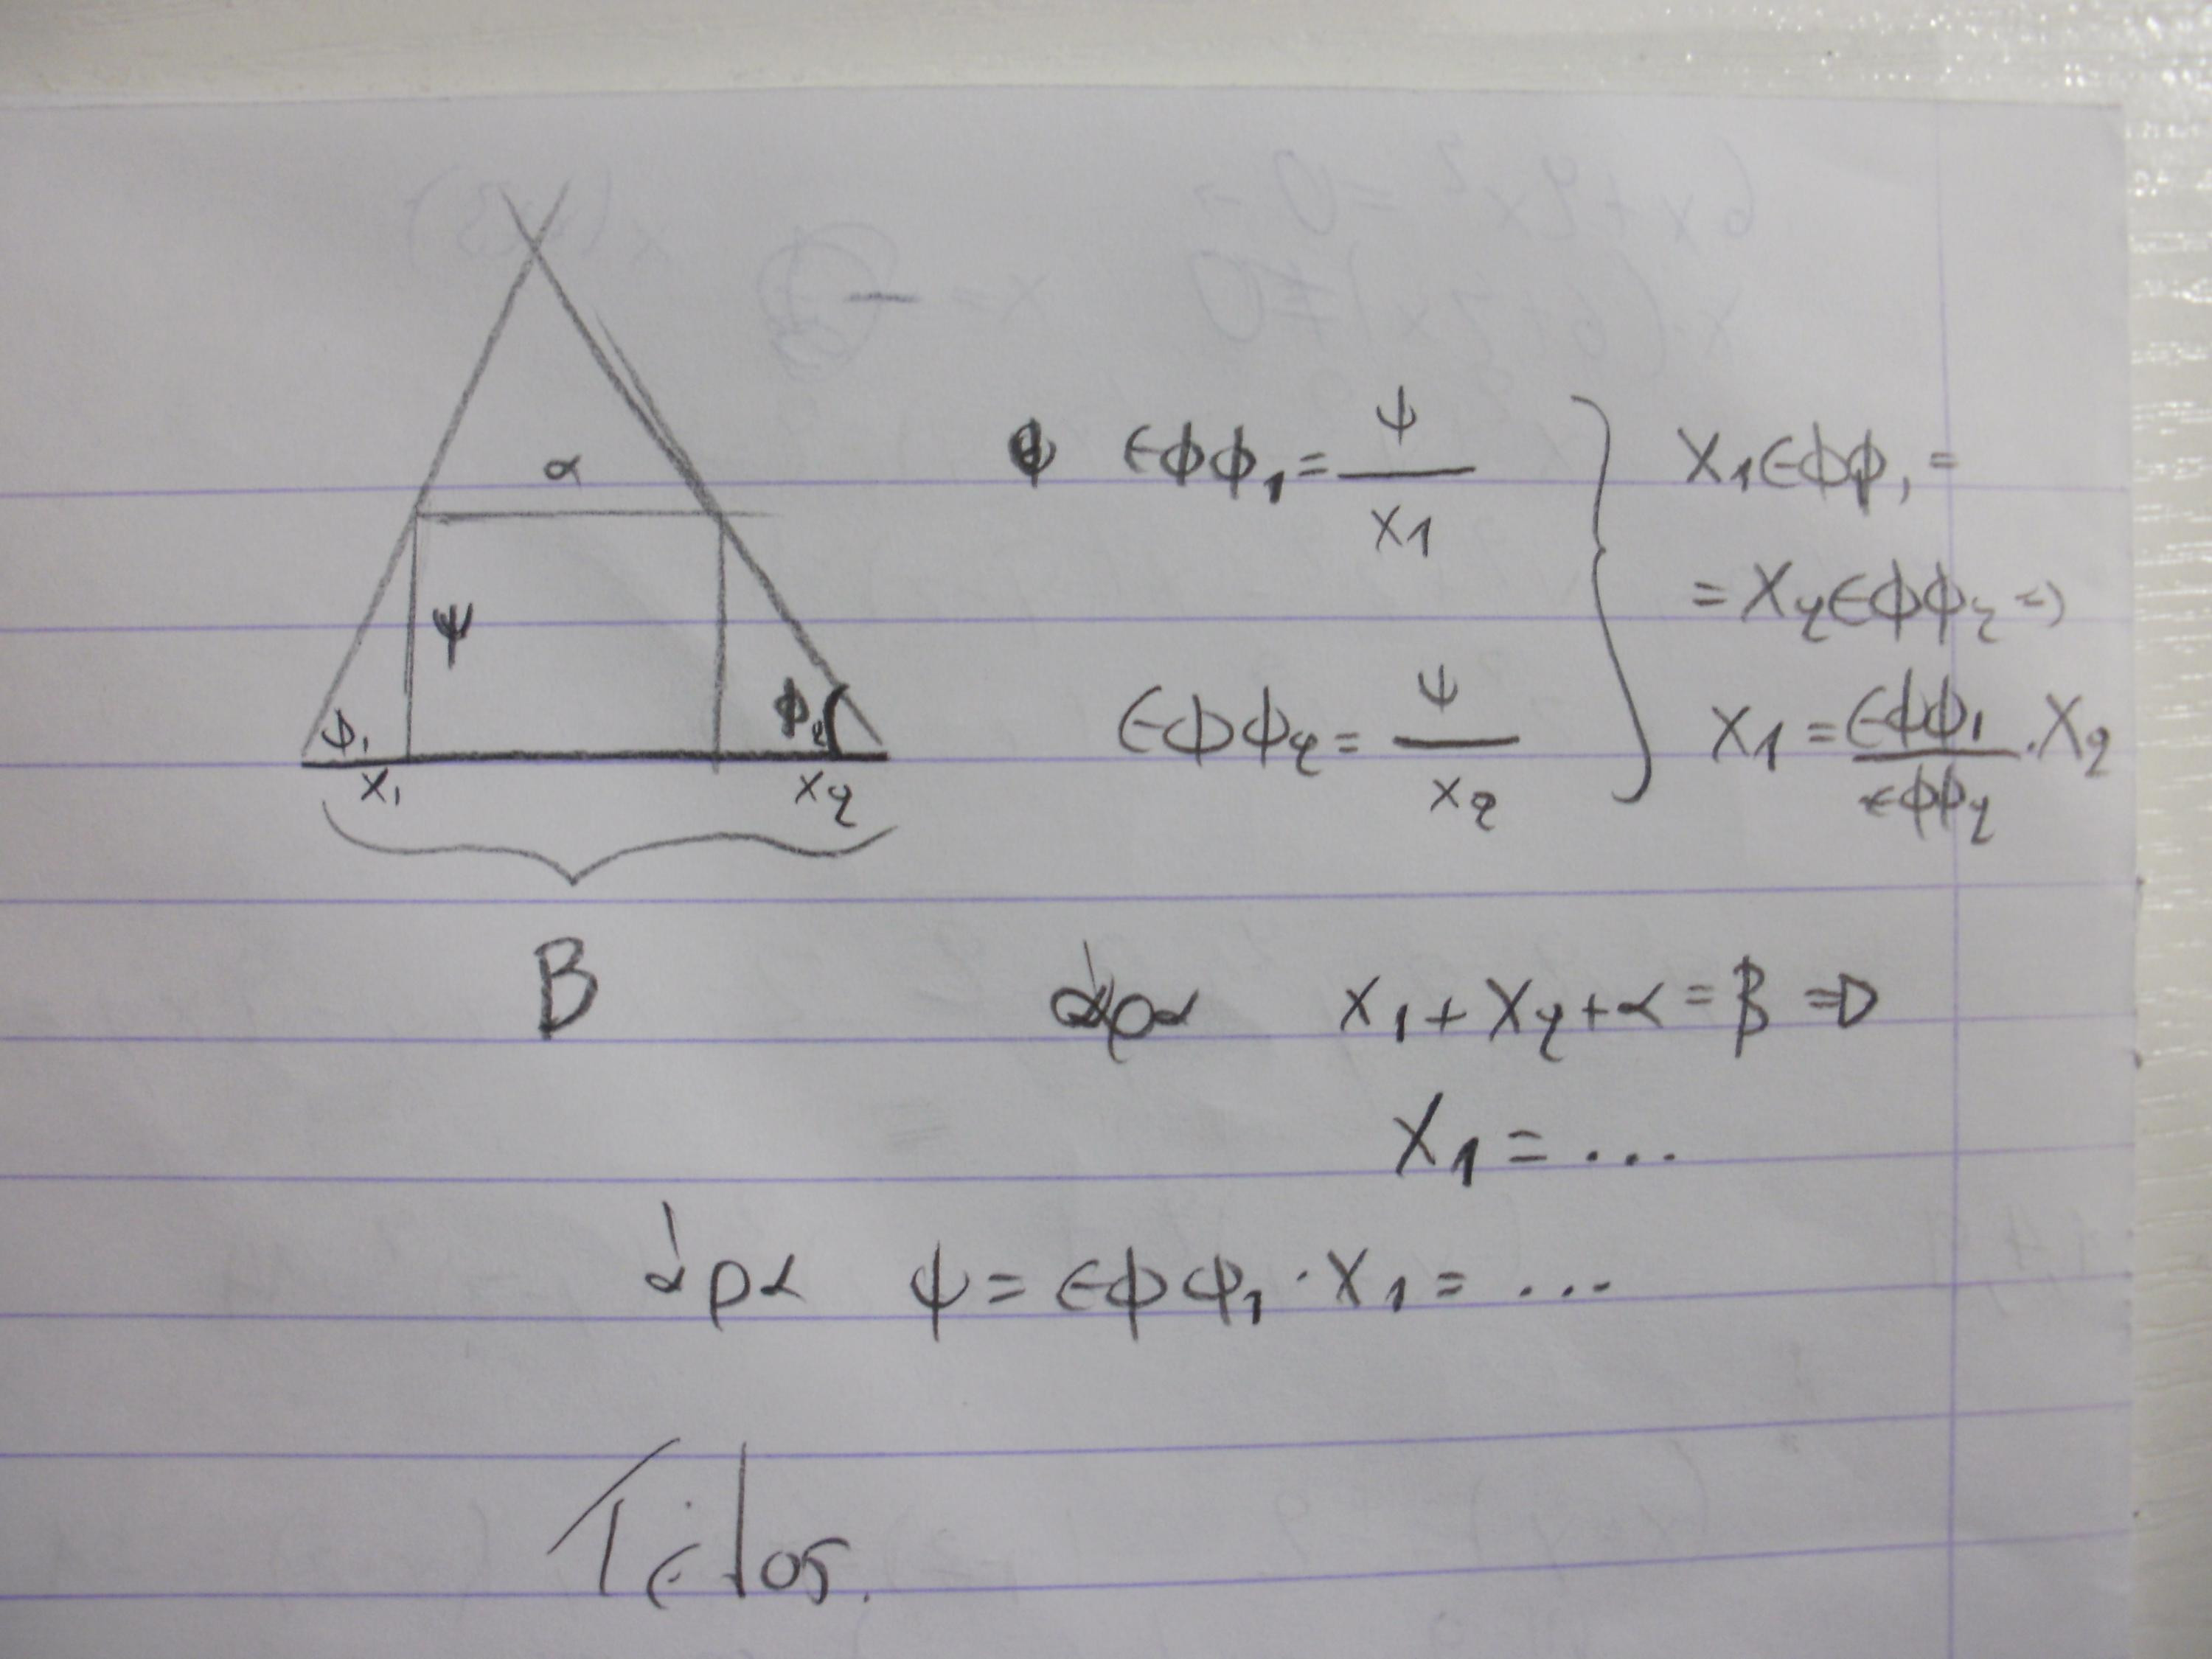 α
ψ
φ₁
φ₂
x₁
x₂
B
εφφ₁ = ψ/x₁
εφφ₂ = ψ/x₂
x₁εφφ₁ =
= x₂εφφ₂ =>
x₁ = εφφ₁/εφφ₂ . x₂
άρα x₁ + x₂ + α = β =>
x₁ = ...
άρα ψ = εφφ₁ · x₁ = ...
Τέλος.